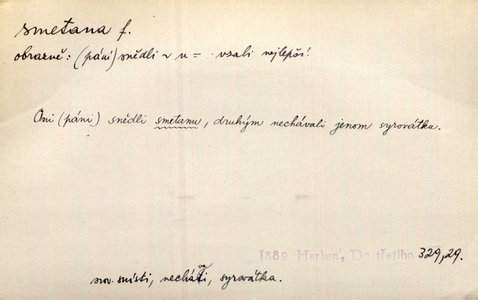 smetana f.
obrazně: (páni) snědli ~ u = vzali nejlepší!
Oni (páni) snědli smetanu, druhým nechávali jenom syrovátku.
1889 Herben, Do třetího 329,29.
snísti, nechati, syrovátka.